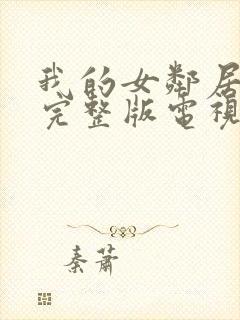 我的女鄰居
完整版電視
秦蕭